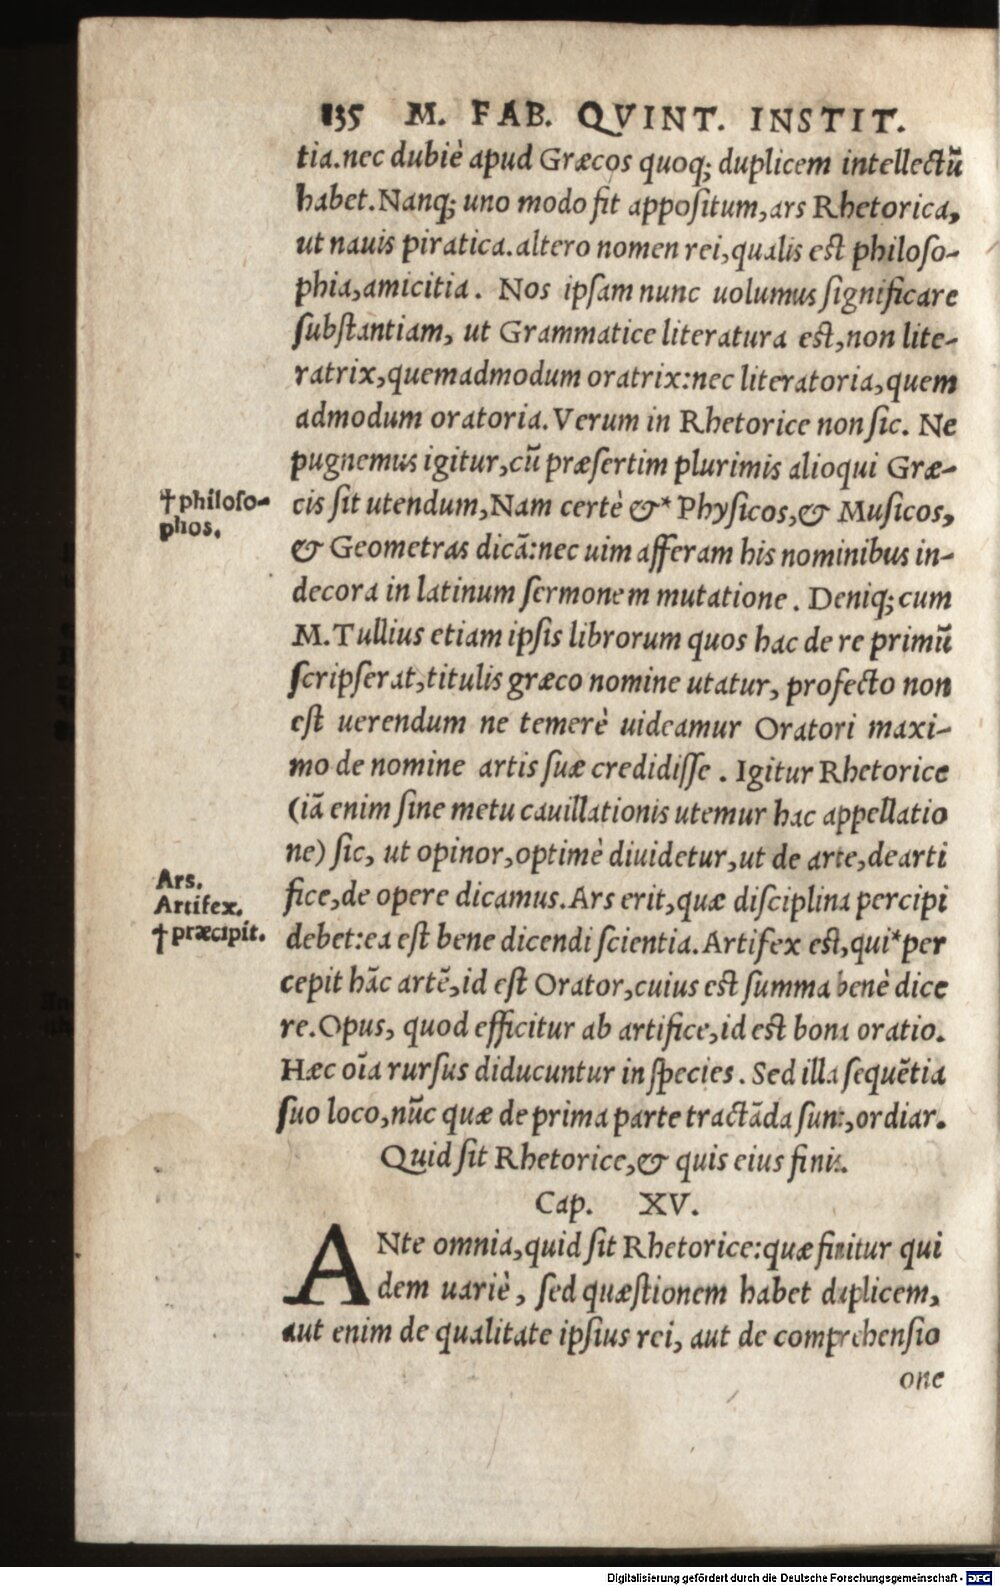 135 M. FAB. QVINT. INSTIT.
tia.nec dubiè apud Græcos quoq; duplicem intellectũ
habet.Nanq; uno modo fit appositum,ars Rhetorica,
ut nauis piratica.altero nomen rei,qualis est philoso-
phia,amicitia. Nos ipsam nunc uolumus significare
substantiam, ut Grammatice literatura est,non lite-
ratrix,quemadmodum oratrix:nec literatoria,quem
admodum oratoria.Verum in Rhetorice non sic. Ne
pugnemus igitur,cũ præsertim plurimis alioqui Græ-
†philoso-
phos.
cis sit utendum,Nam certè &* Physicos,& Musicos,
& Geometras dicã:nec uim afferam his nominibus in-
decora in latinum sermonem mutatione. Deniq; cum
M.Tullius etiam ipsis librorum quos hac de re primũ
scripserat,titulis græco nomine utatur, profecto non
est uerendum ne temerè uideamur Oratori maxi-
mo de nomine artis suæ credidisse. Igitur Rhetorice
(iã enim sine metu cauillationis utemur hac appellatio
ne) sic, ut opinor,optimè diuidetur,ut de arte,de arti
Ars.
Artifex.
†præcipit.
fice,de opere dicamus.Ars erit,quæ disciplina percipi
debet:ea est bene dicendi scientia.Artifex est,qui*per
cepit hãc artẽ,id est Orator,cuius est summa benè dice
re.Opus, quod efficitur ab artifice,id est bona oratio.
Hæc oĩa rursus diducuntur in species. Sed illa sequẽtia
suo loco,nũc quæ de prima parte tractãda sunt,ordiar.
Quid sit Rhetorice,& quis eius finis.
Cap. XV.
ANte omnia,quid sit Rhetorice:quæ finitur qui
dem uariè, sed quæstionem habet duplicem,
aut enim de qualitate ipsius rei, aut de comprehensio
one
Digitalisierung gefördert durch die Deutsche Forschungsgemeinschaft - DFG